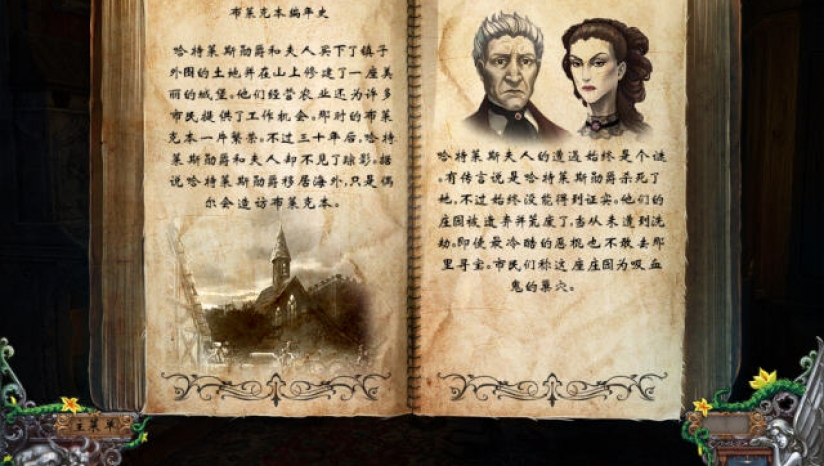 布莱克本编年史
哈特莱斯勋爵和夫人买下了镇子
外围的土地并在山上修建了一座美
丽的城堡。他们经营农业还为许多
市民提供了工作机会。那时的布莱
克本一片繁荣。不过三十年后,哈特
莱斯勋爵和夫人却不见了踪影。据
说哈特莱斯勋爵移居海外,只是偶
尔会造访布莱克本。
哈特莱斯夫人的遭遇始终是个谜
。有传言说是哈特莱斯勋爵杀死了
她,不过始终没能得到证实。他们的
庄园被遗弃并荒废了,当从未遭到洗
劫。即使最冷酷的恶棍也不敢去那
里寻宝。市民们称这座庄园为吸血
鬼的巢穴。
主菜单